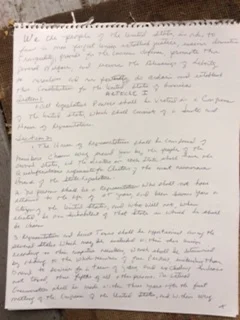 We the people of the United State, in order to
form a more perfect union, establish justice, insure domestic
tranquility, provide for the common defense, promote the
general Welfare, and secure the Blessings of liberty
to ourselves and our posterity, do ordain and establish
this Constitution for the United State of America
Article I
Section 1
All legislative Powers shall be vested in a Congress
of the United State, which shall consist of a Senate and
House of Representatives
Section 2
The House of Representatives shall be composed of
members chosen every second year by the people of the
several states, and the electors in each State shall have the
qualifications requisite for electors of the most numerous
branch of the State legislature
No person shall be a Representative who shall not have
attained to the age of 25 years, and been seven years a
citizen of the United States, and who shall not, when
elected, be an inhabitant of that State in which he shall
be chosen
Representatives and direct Taxes shall be apportioned among the
several States which may be included within this union
according to their respective numbers, which shall be determined
by adding to the whole number of free Persons, including those
bound to service for a term of years, and excluding Indians
not taxed, three fifths of all other persons. The actual
Enumeration shall be made within three years after the first
meeting of the Congress of the United States, and within every